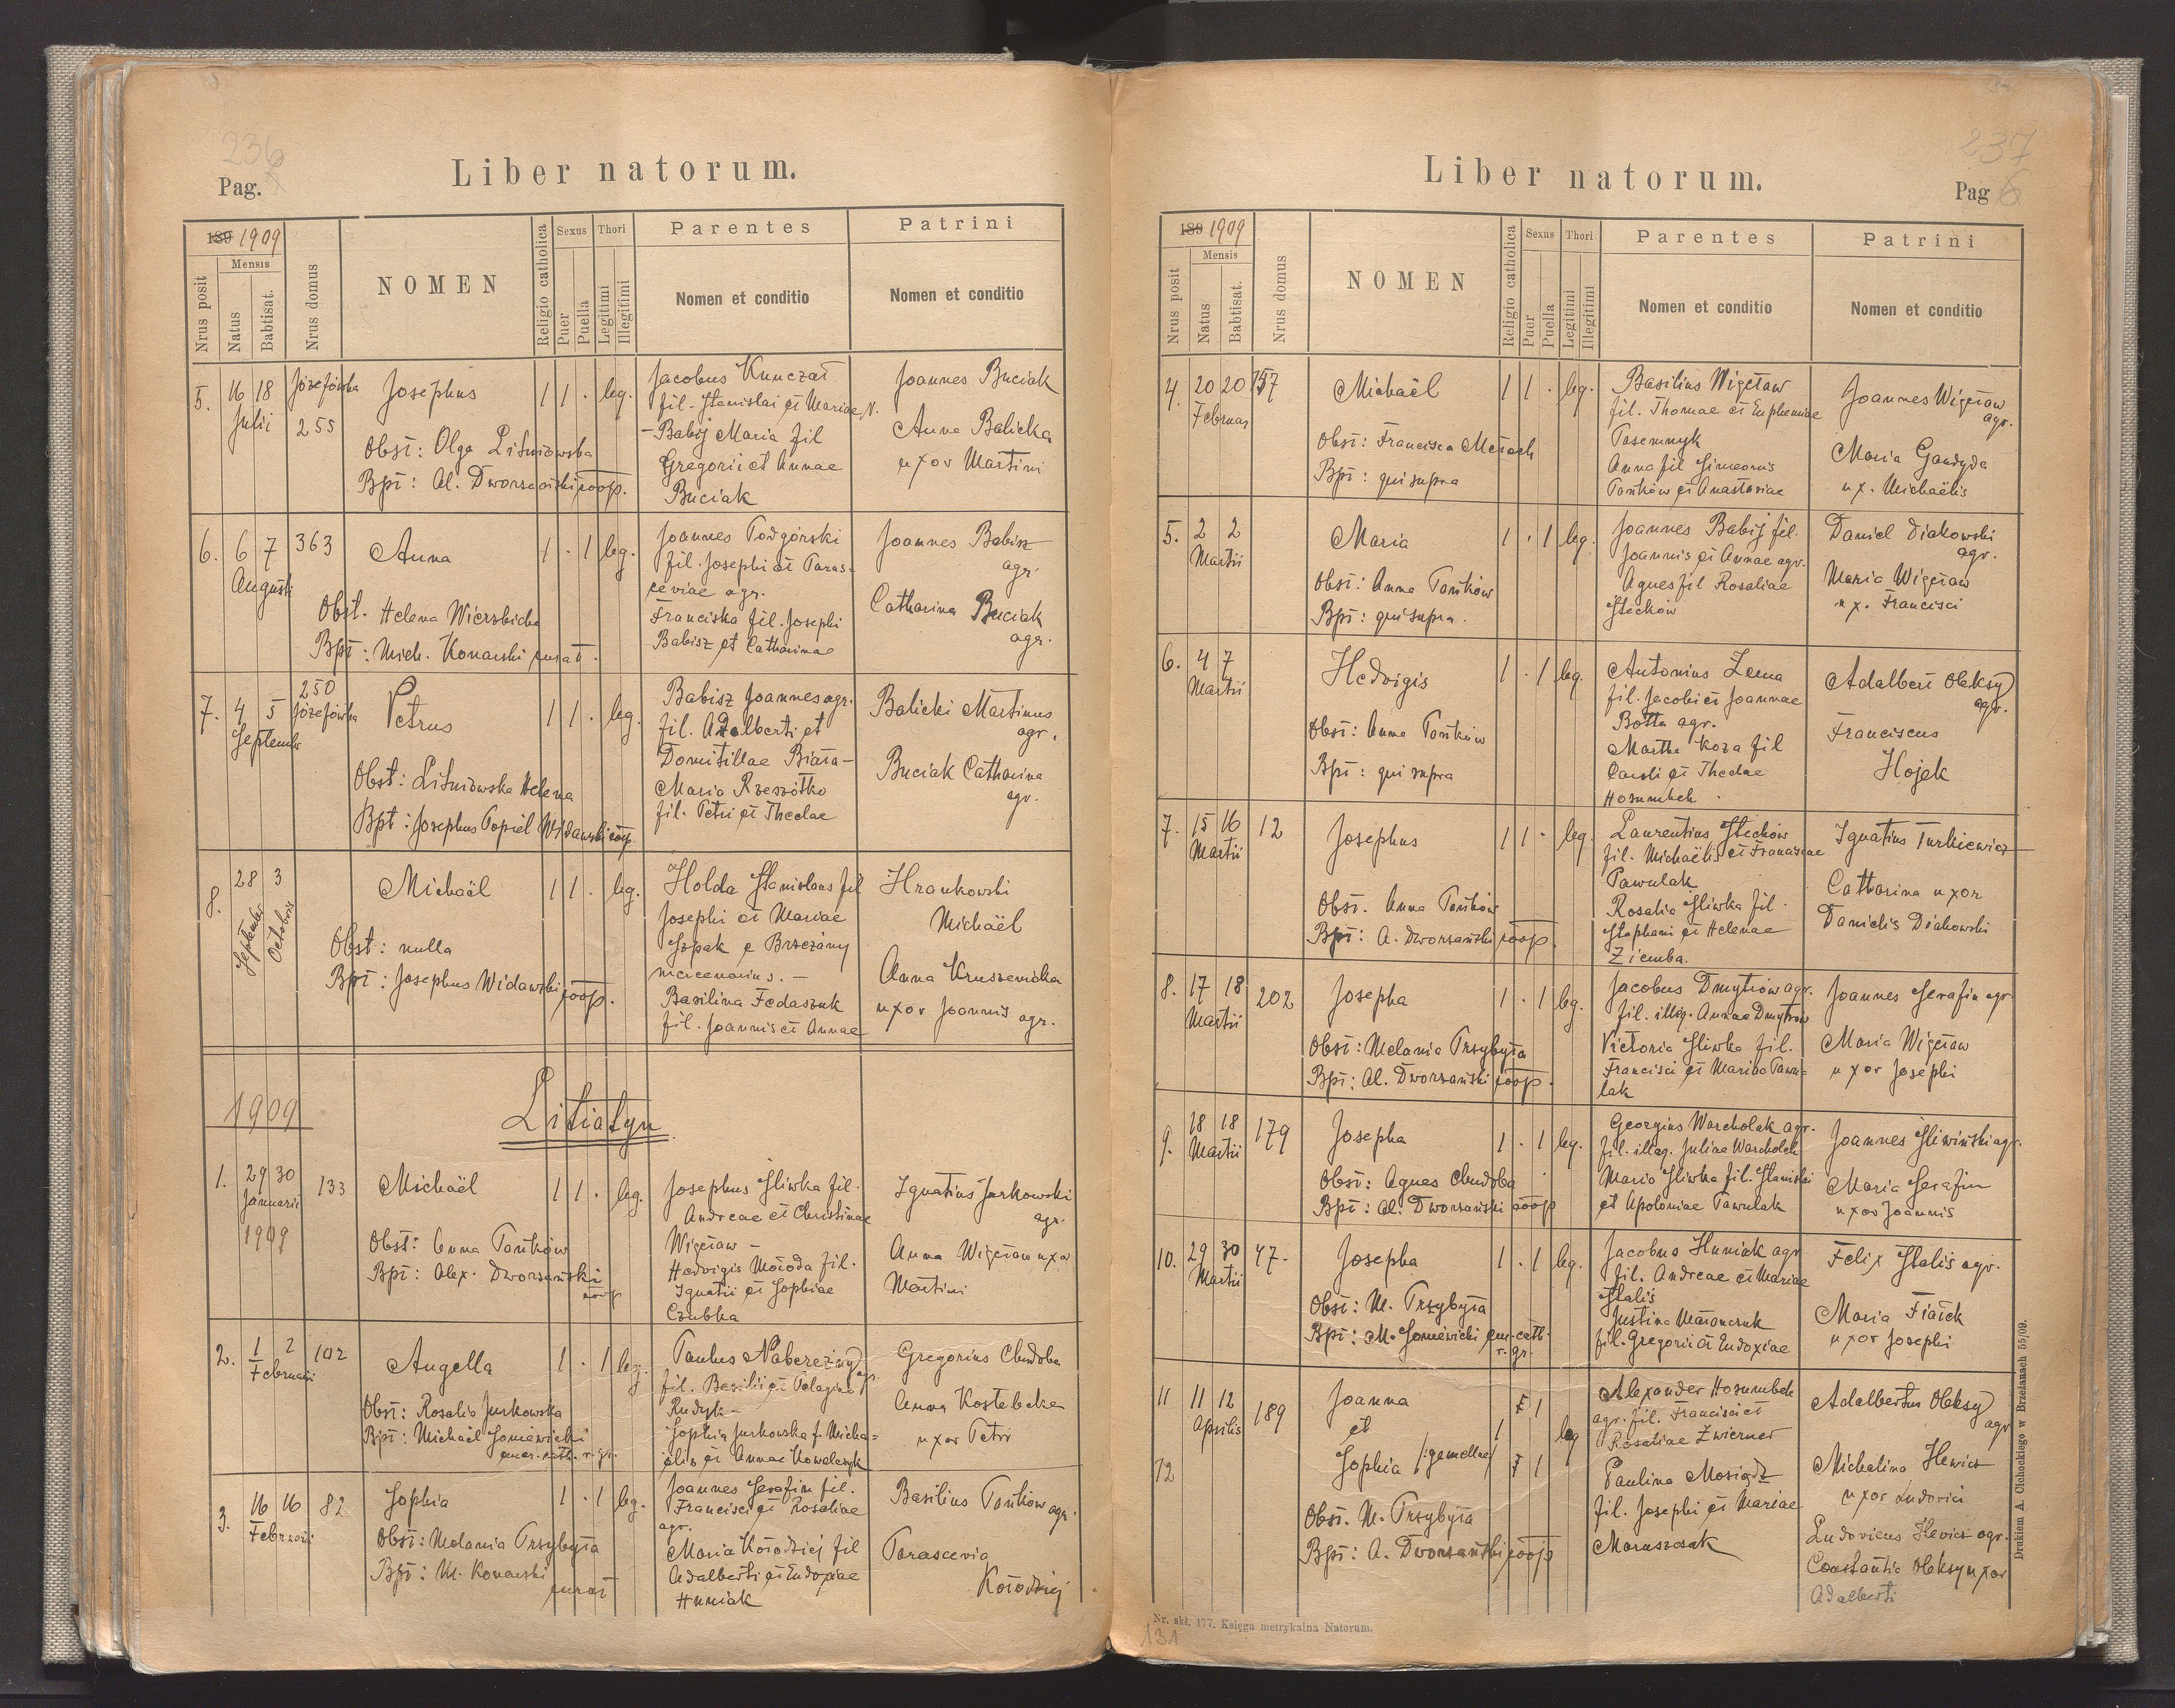 236
Pag.
Liber natorum.
189 1909
Mensis
Nrus posit
Natus
Babtisat.
Nrus domus
NOMEN
Religio catholica
Sexus
Puer
Puella
Thori
Legitimi
Illegitimi
Parentes
Nomen et conditio
Patrini
Nomen et conditio
5. 16 18 Józefówka Josephus 1 1 . leg.
Julii 255
Obst: Olga
Bpt: Al. Dworzański coop.
Jacobus Kunczał
fil. Stanislai et Mariae N.
- Babij Maria fil
Gregorii et Annae
Buciak
Joannes Buciak
Anna Balicka
uxor Martini
6. 6 7 363 Anna 1 . 1 leg.
Augusti
Obst. Helena Wierzbicka
Bpt: Mich. Konarski curat.
Joannes Podgórski
fil. Josephi et Paras-
ceviae agr.
Franciska fil. Josephi
Babisz et Catharinae
Joannes Babisz
agr.
Catharina Buciak
agr.
7. 4 5 250 Józefówka Petrus 1 1 . leg.
Septembr
Obst: Helena
Bpt: Josephus Popiel Widawski coop.
Babisz Joannes agr.
fil. Adalberti et
Domitillae Biała -
Maria Rzeszótko
fil. Petri et Theclae
Balicki Martinus
agr.
Buciak Catharina
agr.
8. 28 3 Michaël 1 1 . leg.
Septembr Octobris
Obst: nulla
Bpt: Josephus Widawski coop.
Holda Stanislaus fil
Josephi et Mariae
Szpak e Brzeżany
mercenarius. -
Basilina Fedaszuk
fil. Joannis et Annae
Hrankowski
Michaël
Anna Kruszenicka
uxor Joannis agr.
1909
Litiatyn
1. 29 30 133 Michaël 1 1 . leg.
Januarii
1909
Obst: Anna Pańków
Bpt: Alex. Dworzański
coop
Josephus Śliwka fil.
Andreae et Christinae
Węcław -
Hedvigis Młoda fil.
Ignatii et Sophiae
Czubka
Ignatius Jurkowski
agr.
Anna uxor
Martini
2. 1 2 102 Angella 1 . 1 leg.
Februarii
Obst: Rosalia Jurkowska
Bpt: Michaël
emer. cath. r. gr.
Paulus Nabereżnyj
agr.
fil. Basilii et Pelagiae
Rudyk -
Sophia Jurkowska f. Micha=
ëlis et Annae Kowalczyk
Gregorius Chudoba
Anna Kostebeka
uxor Petri
3. 16 16 82 Sophia 1 . 1 leg.
Februarii
Obst: Melania Przybyła
Bpt: M. Konarski
curat
Joannes Serafin fil.
Francisci et Rosaliae
agr.
Maria Kołodziej fil
Adalberti et Eudoxiae
Huniak
Basilius Pańków agr.
Parascevia
Kołodziej
237
Liber natorum.
Pag 6
189 1909
Mensis
Nrus posit
Natus
Babtisat.
Nrus domus
NOMEN
Religio catholica
Sexus
Puer
Puella
Thori
Legitimi
Illegitimi
Parentes
Nomen et conditio
Patrini
Nomen et conditio
4. 20 20 157 Michaël 1 1 . leg.
Februar
Obst: Francisca
Bpt: qui supra
Basilius
fil. Thomae et Euphemiae
Anna fil Simeonis
Pańków et Anastasiae
Joannes
agr.
Maria Gandyda
ux. Michaëlis
5. 2 2 Maria 1 . 1 leg.
Martii
Obst: Anna Pańków
Bpt: qui supra.
Joannes Babij fil.
Joannis et Annae agr.
Agnes fil Rosaliae
Steckow
Daniel Diakowski
agr.
Maria
ux. Francisci
6. 4 7 Hedvigis 1 . 1 leg.
Martii
Obst: Anna Pańków
Bpt: qui supra
Antonius Zema
fil. Jacobi et Joannae
Botta agr.
Martha Koza fil
Caroli et Theclae
Hosumbek
Adalbert Oleksy
agr.
Franciscus
Hojek
7. 15 16 12 Josephus 1 1 . leg.
Martii
Obst. Anna Pańków
Bpt: A. Dworzański coop.
Laurentius Steckow
fil. Michaëlis et Franciscae
Pawulak
Rosalia Śliwka fil.
Stephani et Helenae
Ziemba.
Ignatius Turkiewicz
Catharina uxor
Danielis Diakowski
8. 17 18 202 Josepha 1 . 1 leg.
Martii
Obst: Melania Przybyła
Bpt: Al. Dworzański coop.
Jacobus Dmytrów agr.
fil. illeg. Annae Dmytrów
Victoria Śliwka fil.
Francisci et Mariae Pawu=
lak
Joannes Serafin agr
Maria
uxor Josephi
9. 18 18 179 Josepha 1 . 1 leg.
Martii
Obst: Agnes Chudoba
Bpt: Al. Dworzański coop
Georgius Warcholak agr.
fil. illeg. Juliae Warcholak
Maria Śliwka fil. Stanislai
et Apoloniae Pawulak
Joannes Śliwiński agr.
Maria Serafin
uxor Joannis
10. 29 30 47. Josepha 1 . 1 leg.
Martii
Obst: M. Przybyła
Bpt: M. em. cath.
r. gr.
Jacobus Huniak agr
fil. Andreae et Mariae
Stalis
Justina
fil. Gregorii et Eudoxiae
Felix Stalis agr.
Maria Fiałek
uxor Josephi
11 11 12 189 Joanna 1
Aprilis
et 1 leg
12 Sophia /:gemellae/ 1
Obst. M. Przybyła
Bpt: A. Dworzański coop
Alexander Hosumbek
agr. fil. Francisci et
Rosaliae Zwierner
Paulina Mosiądz
fil. Josephi et Mariae
Maruszczak
Adalbertus Oleksy
agr
Michalina Hewicz
uxor Ludovici
Ludovicus Hevicz agr.
Constantia Oleksy uxor
Adalberti
Drukiem A. Cichockiego w Brzeżanach 55/09.
Nr. skł. 177. Księga metrykalna Natorum.
131